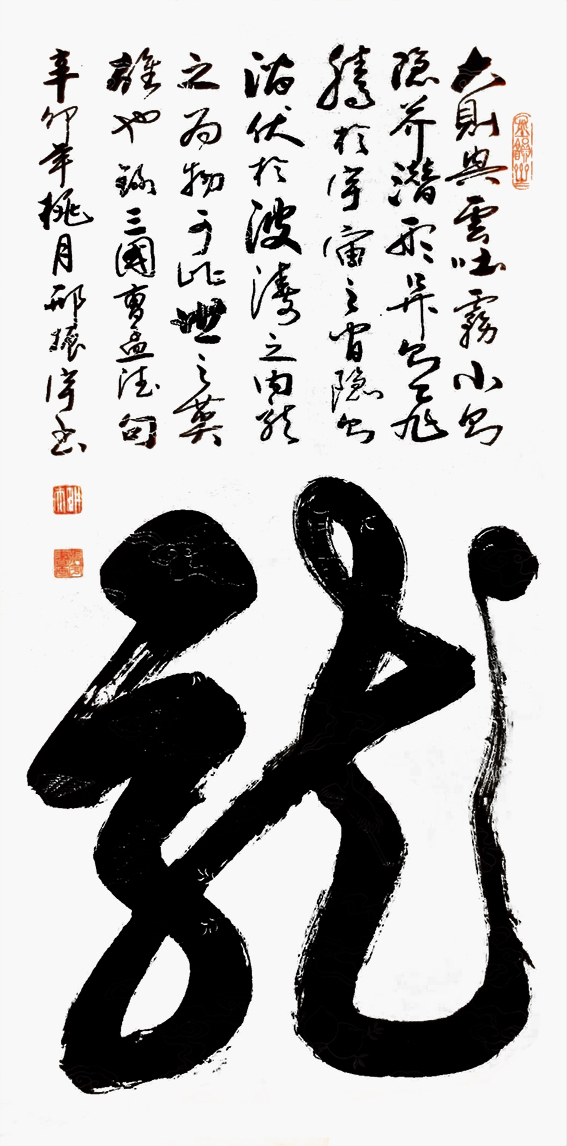 大則興雲吐霧小則
隐芥潛形昇則飛
騰於宇宙之間隐則
潛伏於波濤之内龍
之為物可比世之英
雄也錄三國曹孟德句
辛卯年桃月邢振宇書
龍